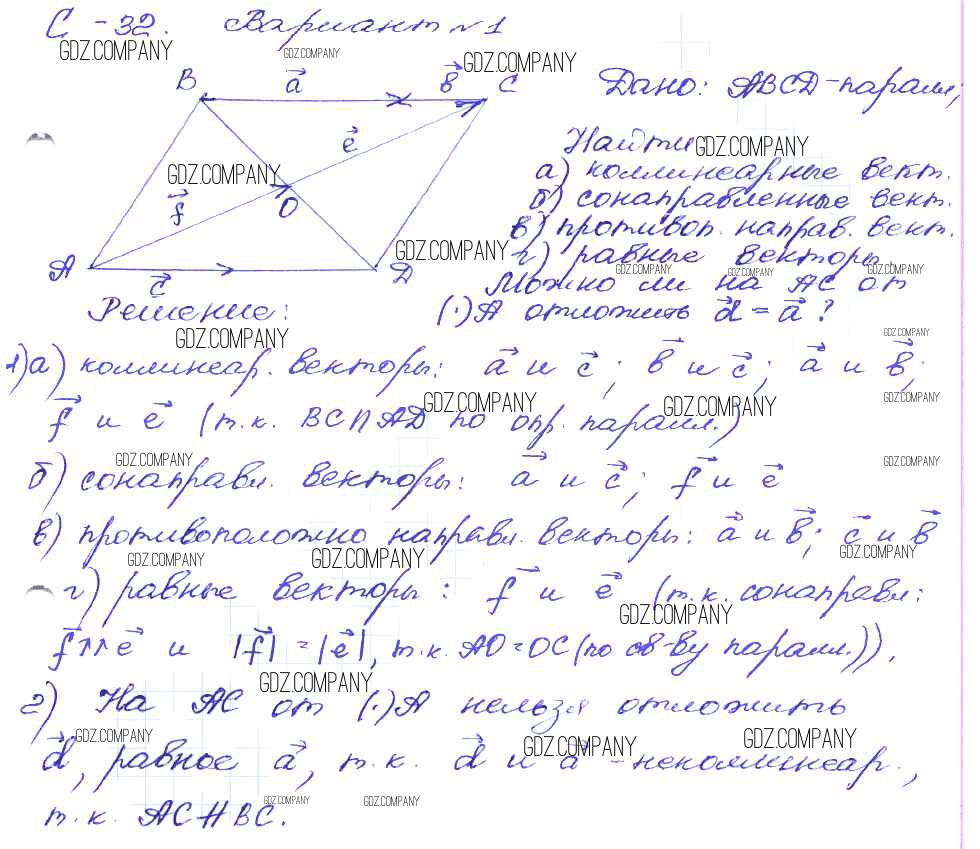 С-32. Вариант №1
GDZ.COMPANY GDZ.COMPANY GDZ.COMPANY
B a в C
Дано: ABCD-паралл;
e
Найти GDZ.COMPANY
GDZ.COMPANY
а) коллинеарные вект.
f O
б) сонаправленные вект.
в) противоп. направ. вект.
A c D GDZ.COMPANY
г) равные векторы.
GDZ.COMPANY GDZ.COMPANY GDZ.COMPANY
Можно ли на AC от
Решение: (·)A отложить d = a ?
GDZ.COMPANY GDZ.COMPANY
1)а) коллинеар. векторы: a и c; в и c; a и в;
GDZ.COMPANY GDZ.COMPANY GDZ.COMPANY
f и e (т.к. BC∩AD по опр. паралл.)
GDZ.COMPANY GDZ.COMPANY
б) сонаправл. векторы: a и c; f и e
в) противоположно направл. векторы: a и в; c и в
GDZ.COMPANY GDZ.COMPANY GDZ.COMPANY
г) равные векторы: f и e (т.к. сонаправл:
GDZ.COMPANY
f↑↑e и |f| = |e|, т.к. AO=OC (по св-ву паралл.)).
GDZ.COMPANY
2) На AC от (·)A нельзя отложить
GDZ.COMPANY GDZ.COMPANY GDZ.COMPANY
d, равное a, т.к. d и a - неколлинеар.,
GDZ.COMPANY GDZ.COMPANY
т.к. AC∦BC.